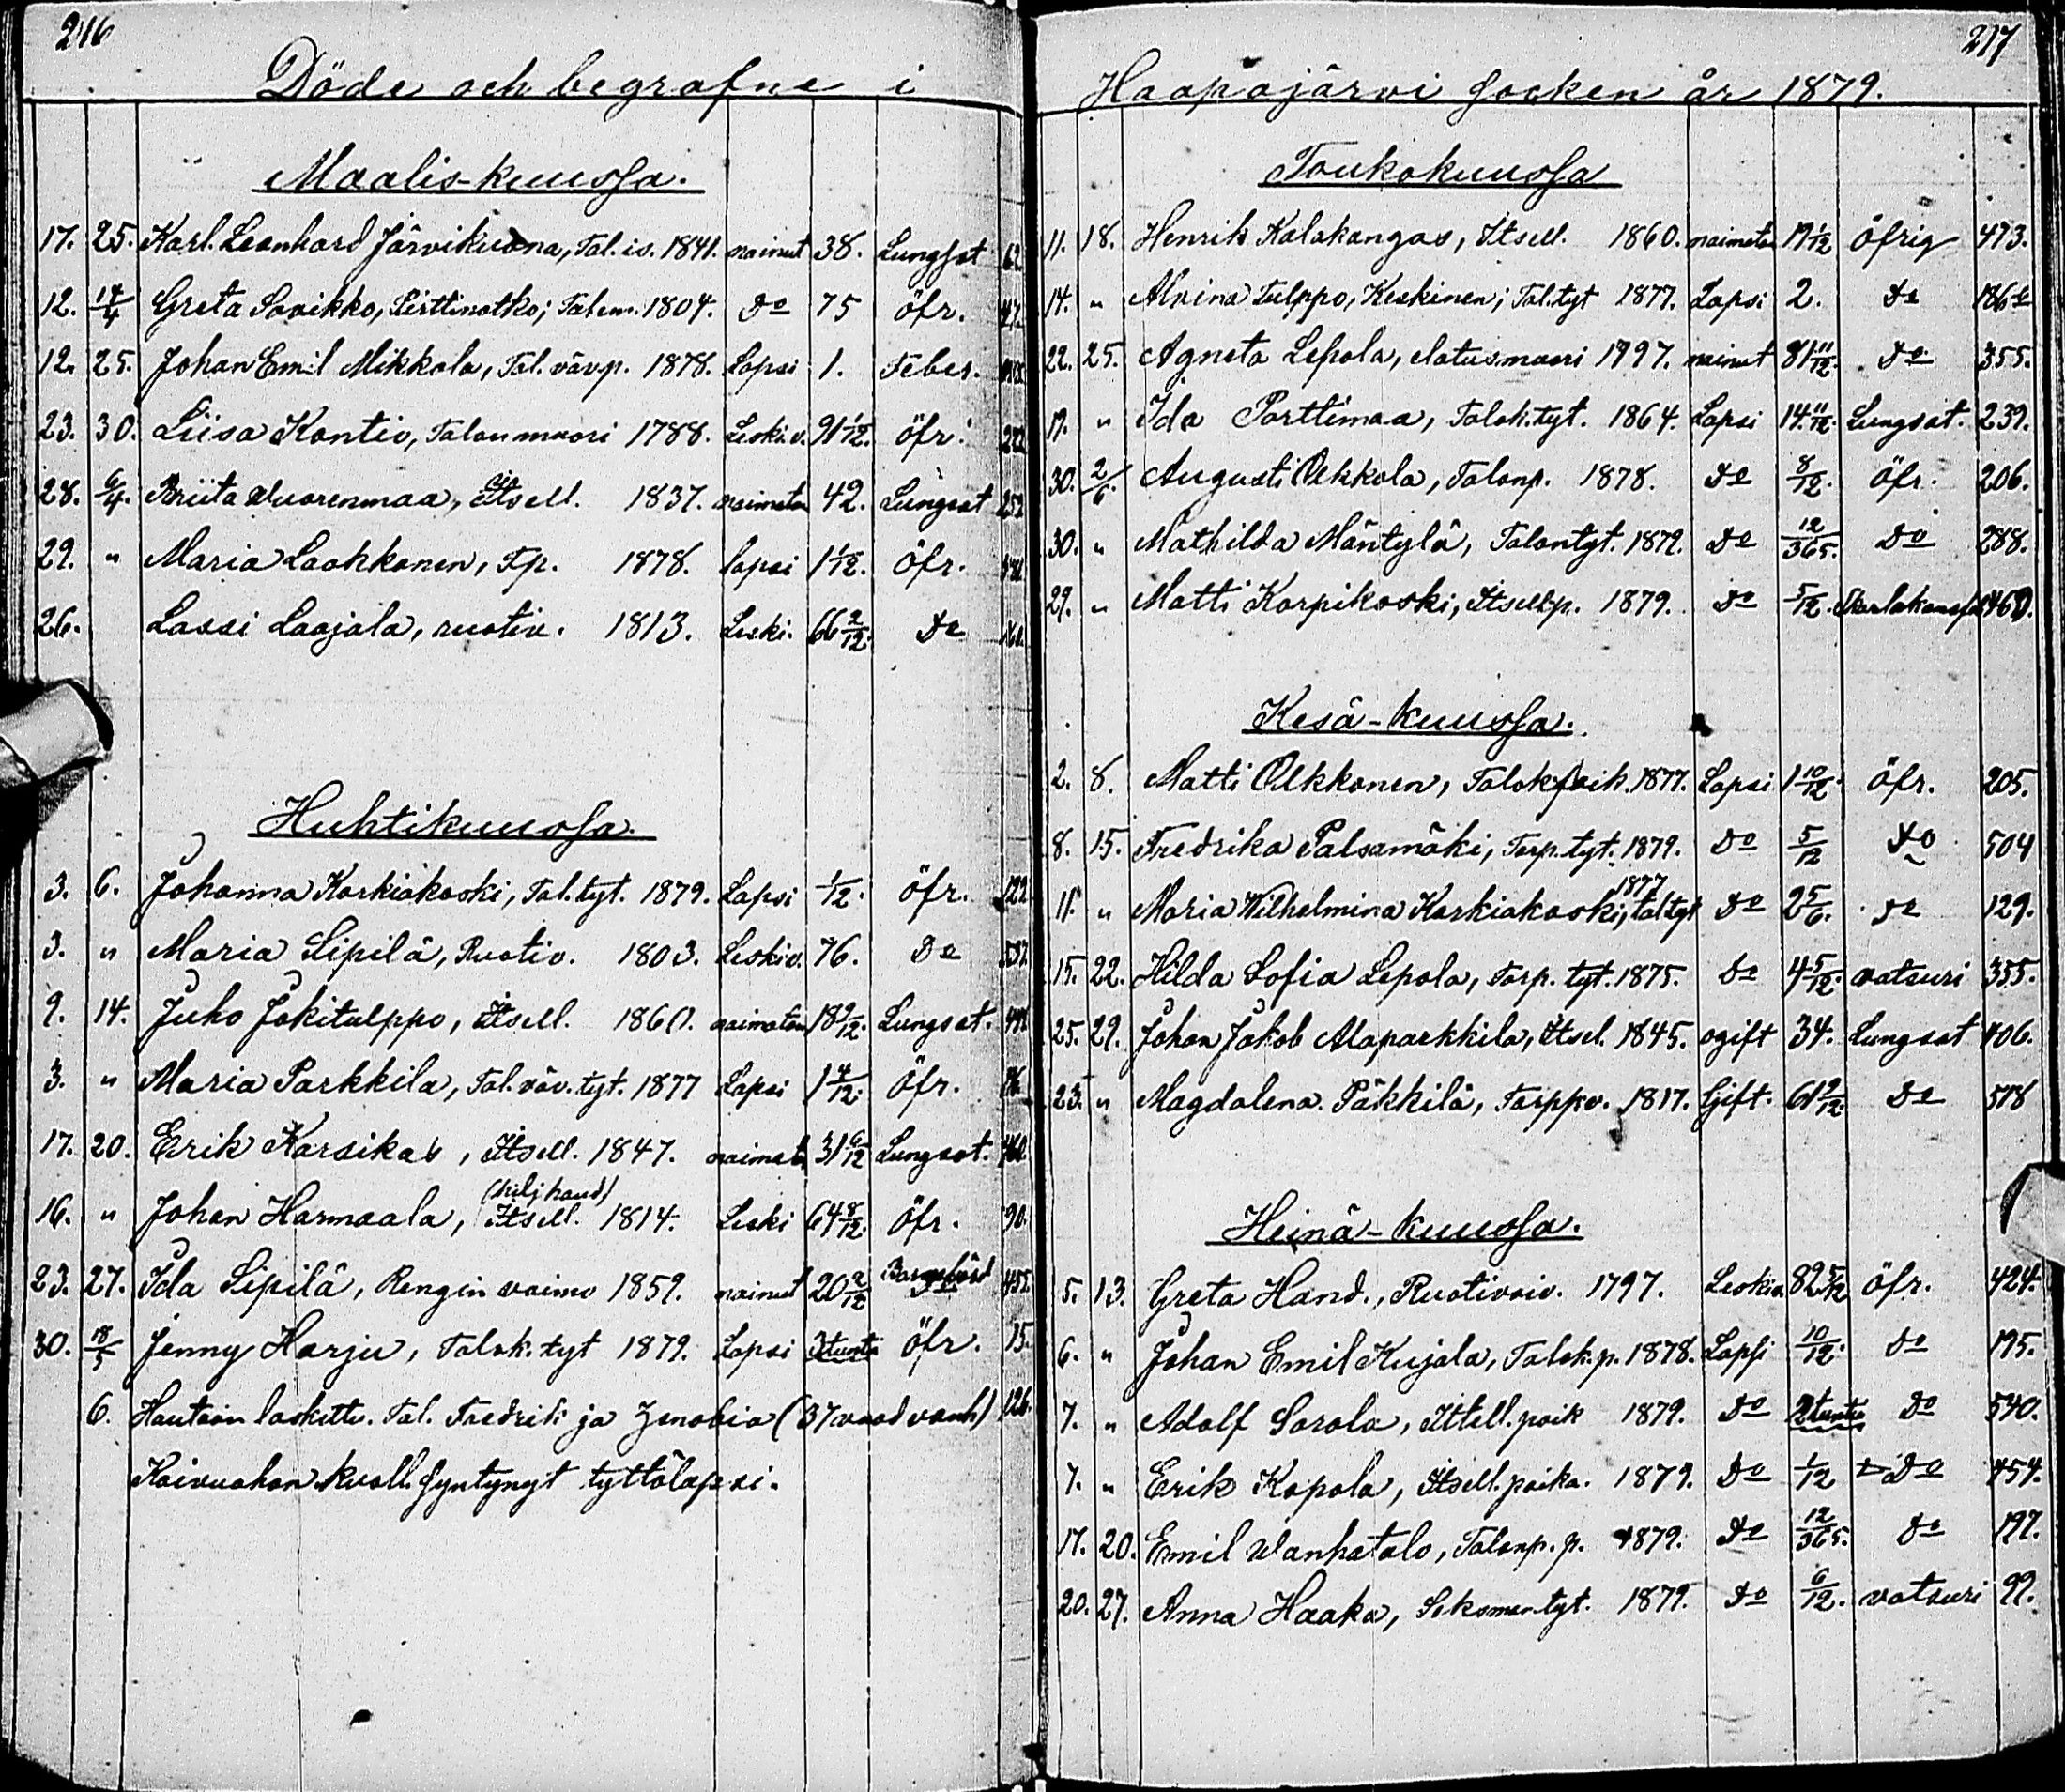 216
Döde och begrafne i
Maalis-kuussa.
17. 25. Karl Leonhard Järvikuona, Tal. is. 1841. nainut 38. Lungsot 62
12. 14/4 Greta Savikko, Tal. em. 1804. Do 75 öfr. 47.
12. 25. Johan Emil Mikkola, Tal. vävp. 1878. Lapsi 1. Feber.
23. 30. Liisa Kontio, Talon muori 1788. Leskiv. 91 1/12. öfr. 272
28. 6/4. Briita Wuorenmaa, Itsell. 1837. naimaton 42. Lungsot 252
29. " Maria Laakkonen, Tp. 1878. lapsi 1 1/12. Öfr.
26. Lassi Laajala, ruotiv. 1813. Leski. 66 2/12. Do
Huhtikuussa.
3. 6. Johanna Karkiakoski, Tal. tyt. 1879. Lapsi 1/12. öfr. 122
3. " Maria Sipilä, Ruotiv. 1803. Leskiv. 76. Do 537.
9. 14. Juho Jokitulppo, Itsell. 1860. naimaton 18 9/12. Lungsot.
3. " Maria Parkkila, Tal. väv. tyt. 1877 Lapsi 1 4/12. Öfr.
17. 20. Erik Karsikas, Itsell. 1847. naimaton 31 6/12 Lungsot. 460.
(hiljhaud)
16. " Johan Harmaala, Itsell. 1814. Leski 64 8/12. Öfr. 90.
23. 27. Ida Sipilä, Rengin vaimo 1859. nainut 20 2/12 Barnsbörd 455.
30. 18/5 Jenny Harju, Talok. tyt 1879. Lapsi 3 tunti öfr. 15.
6. Hautaan laskettu. Tal. Fredrik ja Zenobia (37 vuod vanh) 126.
Koivuahon kuoll. syntynyt tyttölapsi.
217
Haapajärvi socken år 1879.
Toukokuussa
11. 18. Henrik Kalakangas, Itsell. 1860. naimaton 19 1/12 öfrig 473.
14. " Alviina Tulppo, Keskinen; Tal. tyt 1877. Lapsi 2. Do 186
22. 25. Agneta Lepola, elatusmuori 1797. nainut 81 11/12. Do 355.
19. " Ida Porttimaa, Talok. tyt. 1864. Lapsi 14 11/12. Lungsot. 239.
30. 2/6. Augusti Olkkola, Talonp. 1878. Do 8/12. Öfr. 206.
30. " Mathilda Mäntylä, Talontyt. 1879. Do 12/365. Do 288.
29. " Matti Karpikoski, Itsellp. 1879. Do 5/12. 460.
Kesä-kuussa.
2. 8. Matti Olkkonen, Talokpoik. 1877. Lapsi 1 10/12. öfr. 205.
8. 15. Fredrika Palsamäki, Torp. tyt. 1879. Do 5/12 Do 504
1877
11. " Maria Wilhelmina Karkiakoski, tal tyt Do 2 5/6. Do 129.
15. 22. Hilda Sofia Lepola, Torp. tyt. 1875. Do 4 5/12. vatsuri 355.
25. 29. Johan Jakob Alaparkkila, Itsel. 1845. ogift 34. Lungsot 406.
23. " Magdalena Päkkilä, Torppv. 1817. Gift. 61 9/12. Do 578
Heinä-kuussa.
5. 13. Greta Hand., Ruotivaiv. 1797. Leskiv. 82 5/12 öfr. 424.
6. " Johan Emil Kujala, Talok. p. 1878. Lapsi 10/12. Do 195.
7. " Adolf Sorola, Ittell. poik 1879. Do 2 tuntia Do 540.
7. " Erik Kopola, Itsell. poika. 1879. Do 1/12 Do 454.
17. 20. Emil Wanhatalo, Talonp. p. 1879. Do 12/365. Do 197.
20. 27. Anna Haaka, Seksmon tyt. 1879. Do 6/12. vatsuri 99.